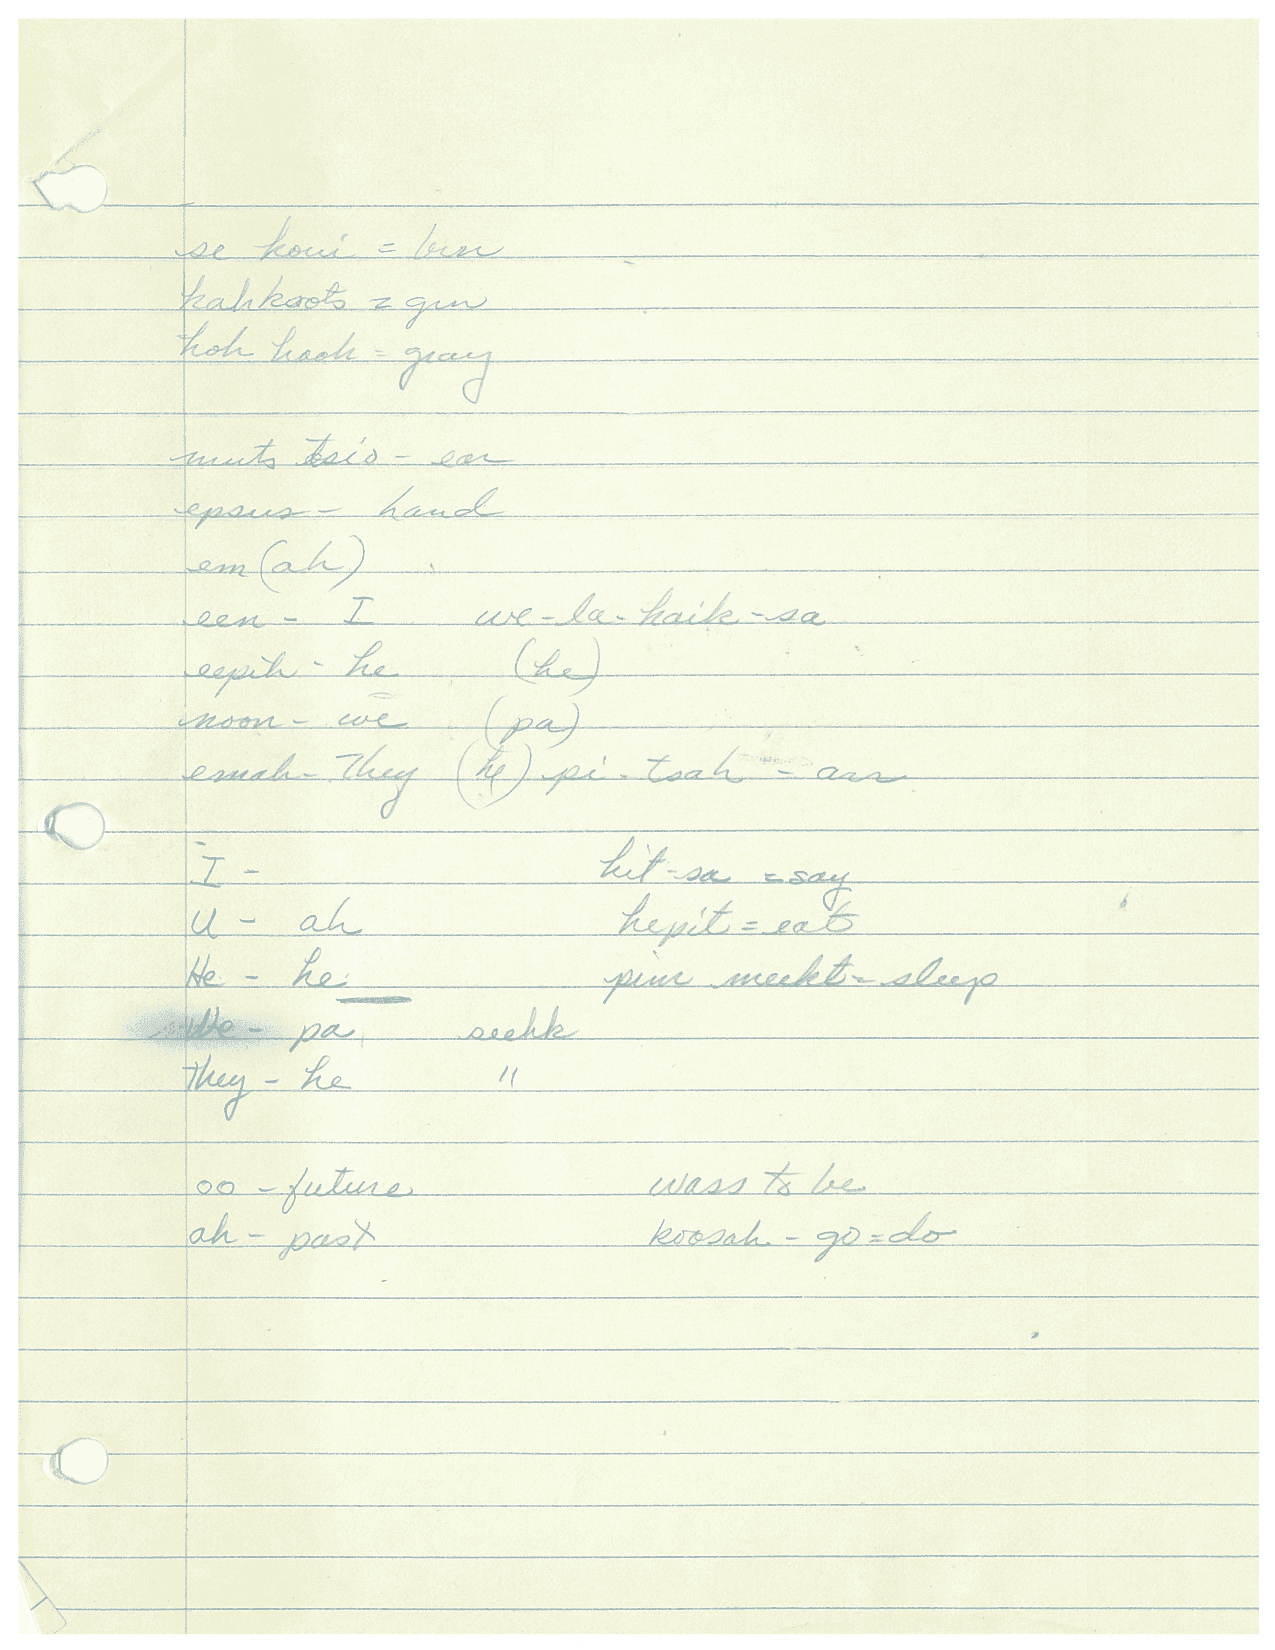 se koui = brn
kahkoots = grn
hoh hooh = gray
muts tsio - ear
epsus - hand
em (ah)
een - I we-la-haik-sa
eepih - he (he)
noon - we (pa)
emah - They (he) pi-tsah = arr
I - hit-sa = say
U - ah hepit = eat
He - he pim meekt = sleep
We - pa seehk
They - he "
oo - future wass to be
ah - past koosah - go = do